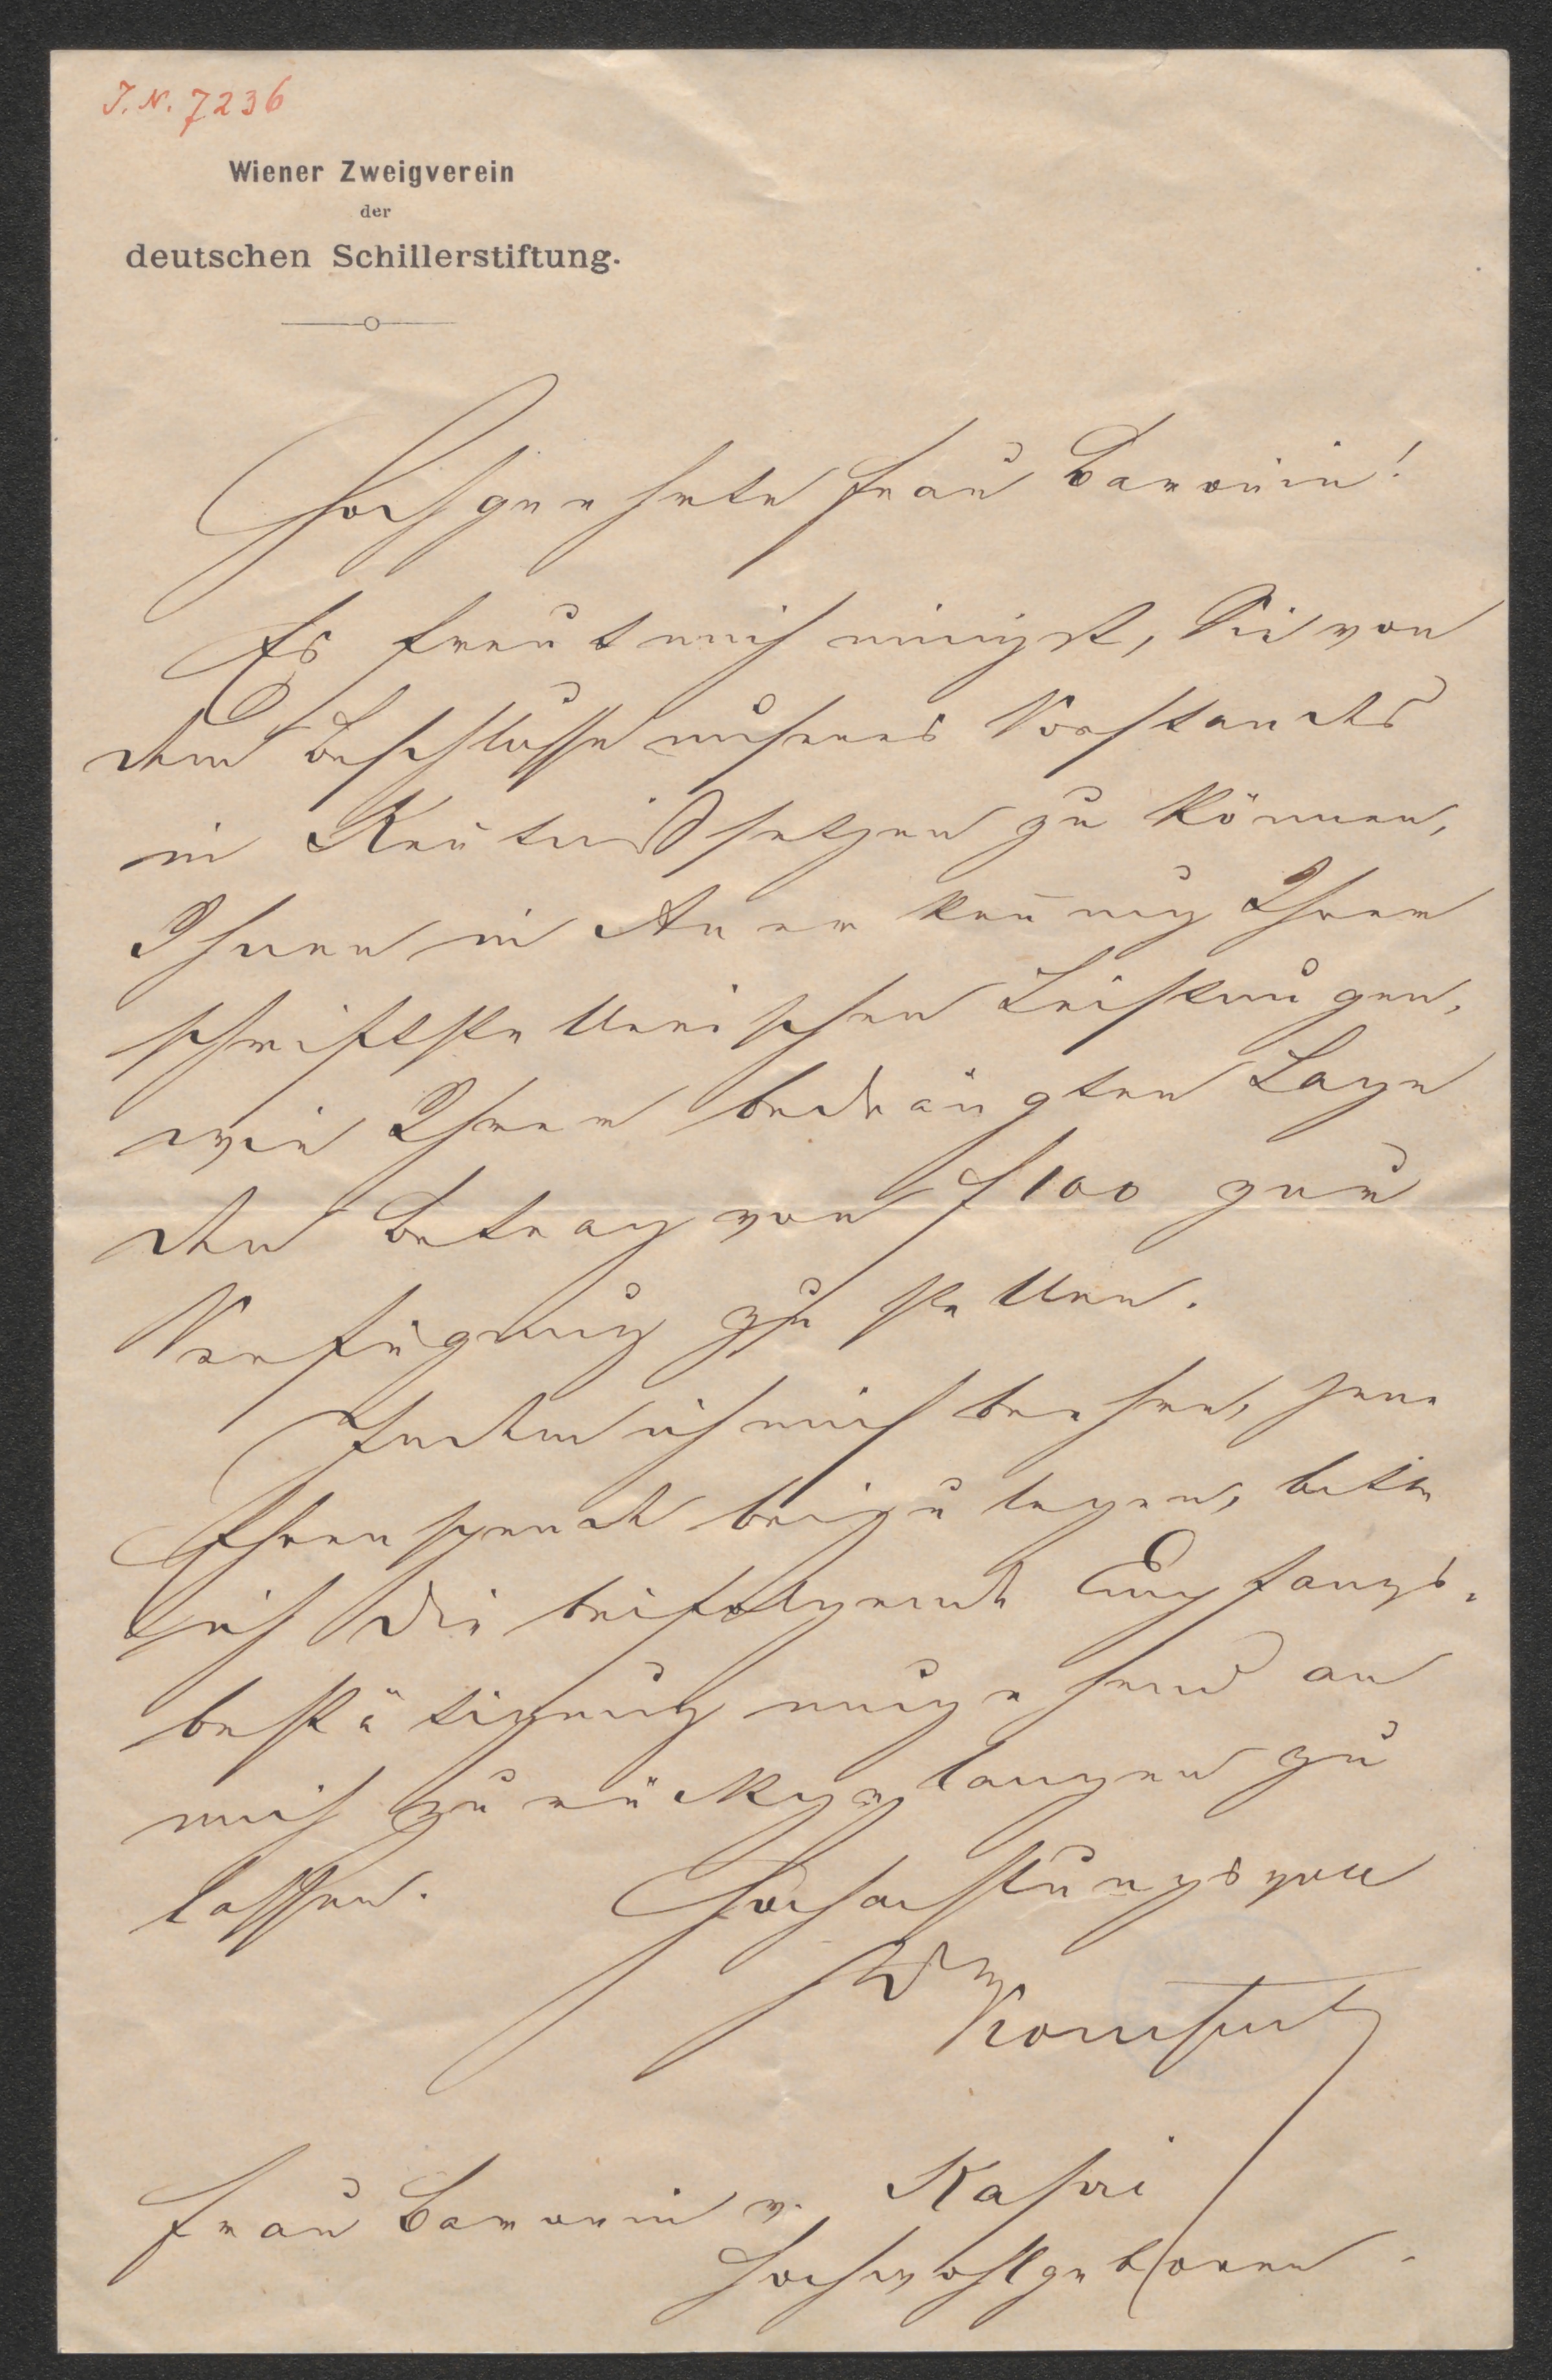 J. N. 7236
Wiener Zweigverein
der
deutschen Schillerstiftung.
Hochgeehrte Frau Baronin!
Es freut mich innigst, Sie von
dem Beschlusse unseres Vorstandes
in Kenntniß setzen zu können,
Ihnen in Anerkennung Ihrer
schriftstellerischen Leistungen,
wie Ihrer bedrängten Lage
den Betrag von f 100 zur
Verfügung zu stellen.
Indem ich mich beehre, jene
Ehrenspende beizulegen, bitte
ich die beifolgende Empfangs-
bestätigung umgehend an
mich zurückgelangen zu
lassen. Hochachtungsvoll
Frau Baronin v. Kapri
Hochwohlgeboren.